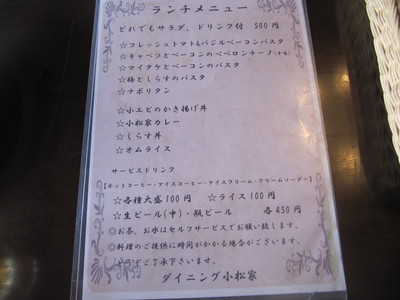 ランチメニュー
どれでもサラダ、ドリンク付 500円
☆フレッシュトマト&バジルベーコンパスタ
☆キャベツとベーコンのペペロンチーノ
☆マイタケとベーコンのパスタ
☆梅としらすのパスタ
☆ナポリタン
☆小エビのかき揚げ丼
☆小松家カレー
☆しらす丼
☆オムライス
サービスドリンク
【ホットコーヒー・アイスコーヒー・アイスクリーム・クリームソーダー】
☆各種大盛100円 ☆ライス100円
☆生ビール(中)・瓶ビール 各450円
◎お茶、お水はセルフサービスでお願い致します。
◎料理のご提供に時間がかかる場合がございます。
どうぞご了承下さいませ。
ダイニング小松家